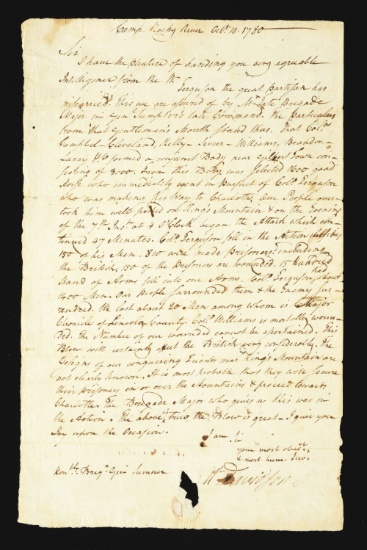 Camp Rocky River Octr. 10. 1780
Sir
I have the pleasure of handing you very agreeable
Intelligence from the W. Ferguson the great partisan has
miscarried. This we are assured of by Mr. Tate Brigade
Major in Gen Sumpter's late Command. The particulars
from that Gentleman's Mouth stand thus. That Cols.
Campbel - Cleveland, Shelby - Sevier - Williams, Brandon
Lacey &c formed a conjunct Body near Gilbert Town con-
sisting of 3000. From this Body was selected 1600 good
Horse who immediately went in Pursuit of Colo. Ferguson
who was making his Way to Charlotte. Our People over-
took him well posted on King's Mountain & on the Evening
of the 7th. Inst. at 4 O'Clock began the Attack which con-
tinued 47 Minutes. Colo. Ferguson fell in the Action
150 of his Men. 810 were made Prisoners including
the British, 150 of the Prisoners are wounded. 15 hundred
Stand of Arms fell into our Hands. Colo. Ferguson had about
1400 Men. Our People surrounded them & the Enemy sur-
rendred. We lost about 20 Men among whom is Major
Chronicle of Lincoln County. Colo. Williams is mortally woun-
ded. The Number of our wounded cannot be ascertained. This
Blow will certainly affect the British very considerably. The
Designs of our conquering Friends near King's Mountain are
not clearly known. It is most probable that they will secure
their prisoners in or over the Mountains & proceed towards
Charlotte. The Brigade Major who gives us this was in
the Action. The above is true. the Blow is great - I give you
Joy upon the Occasion.
I am Sir
your most obedt.
& most hum. Serv.
Honble. Brigr. Genl. Sumner
W. Davidson